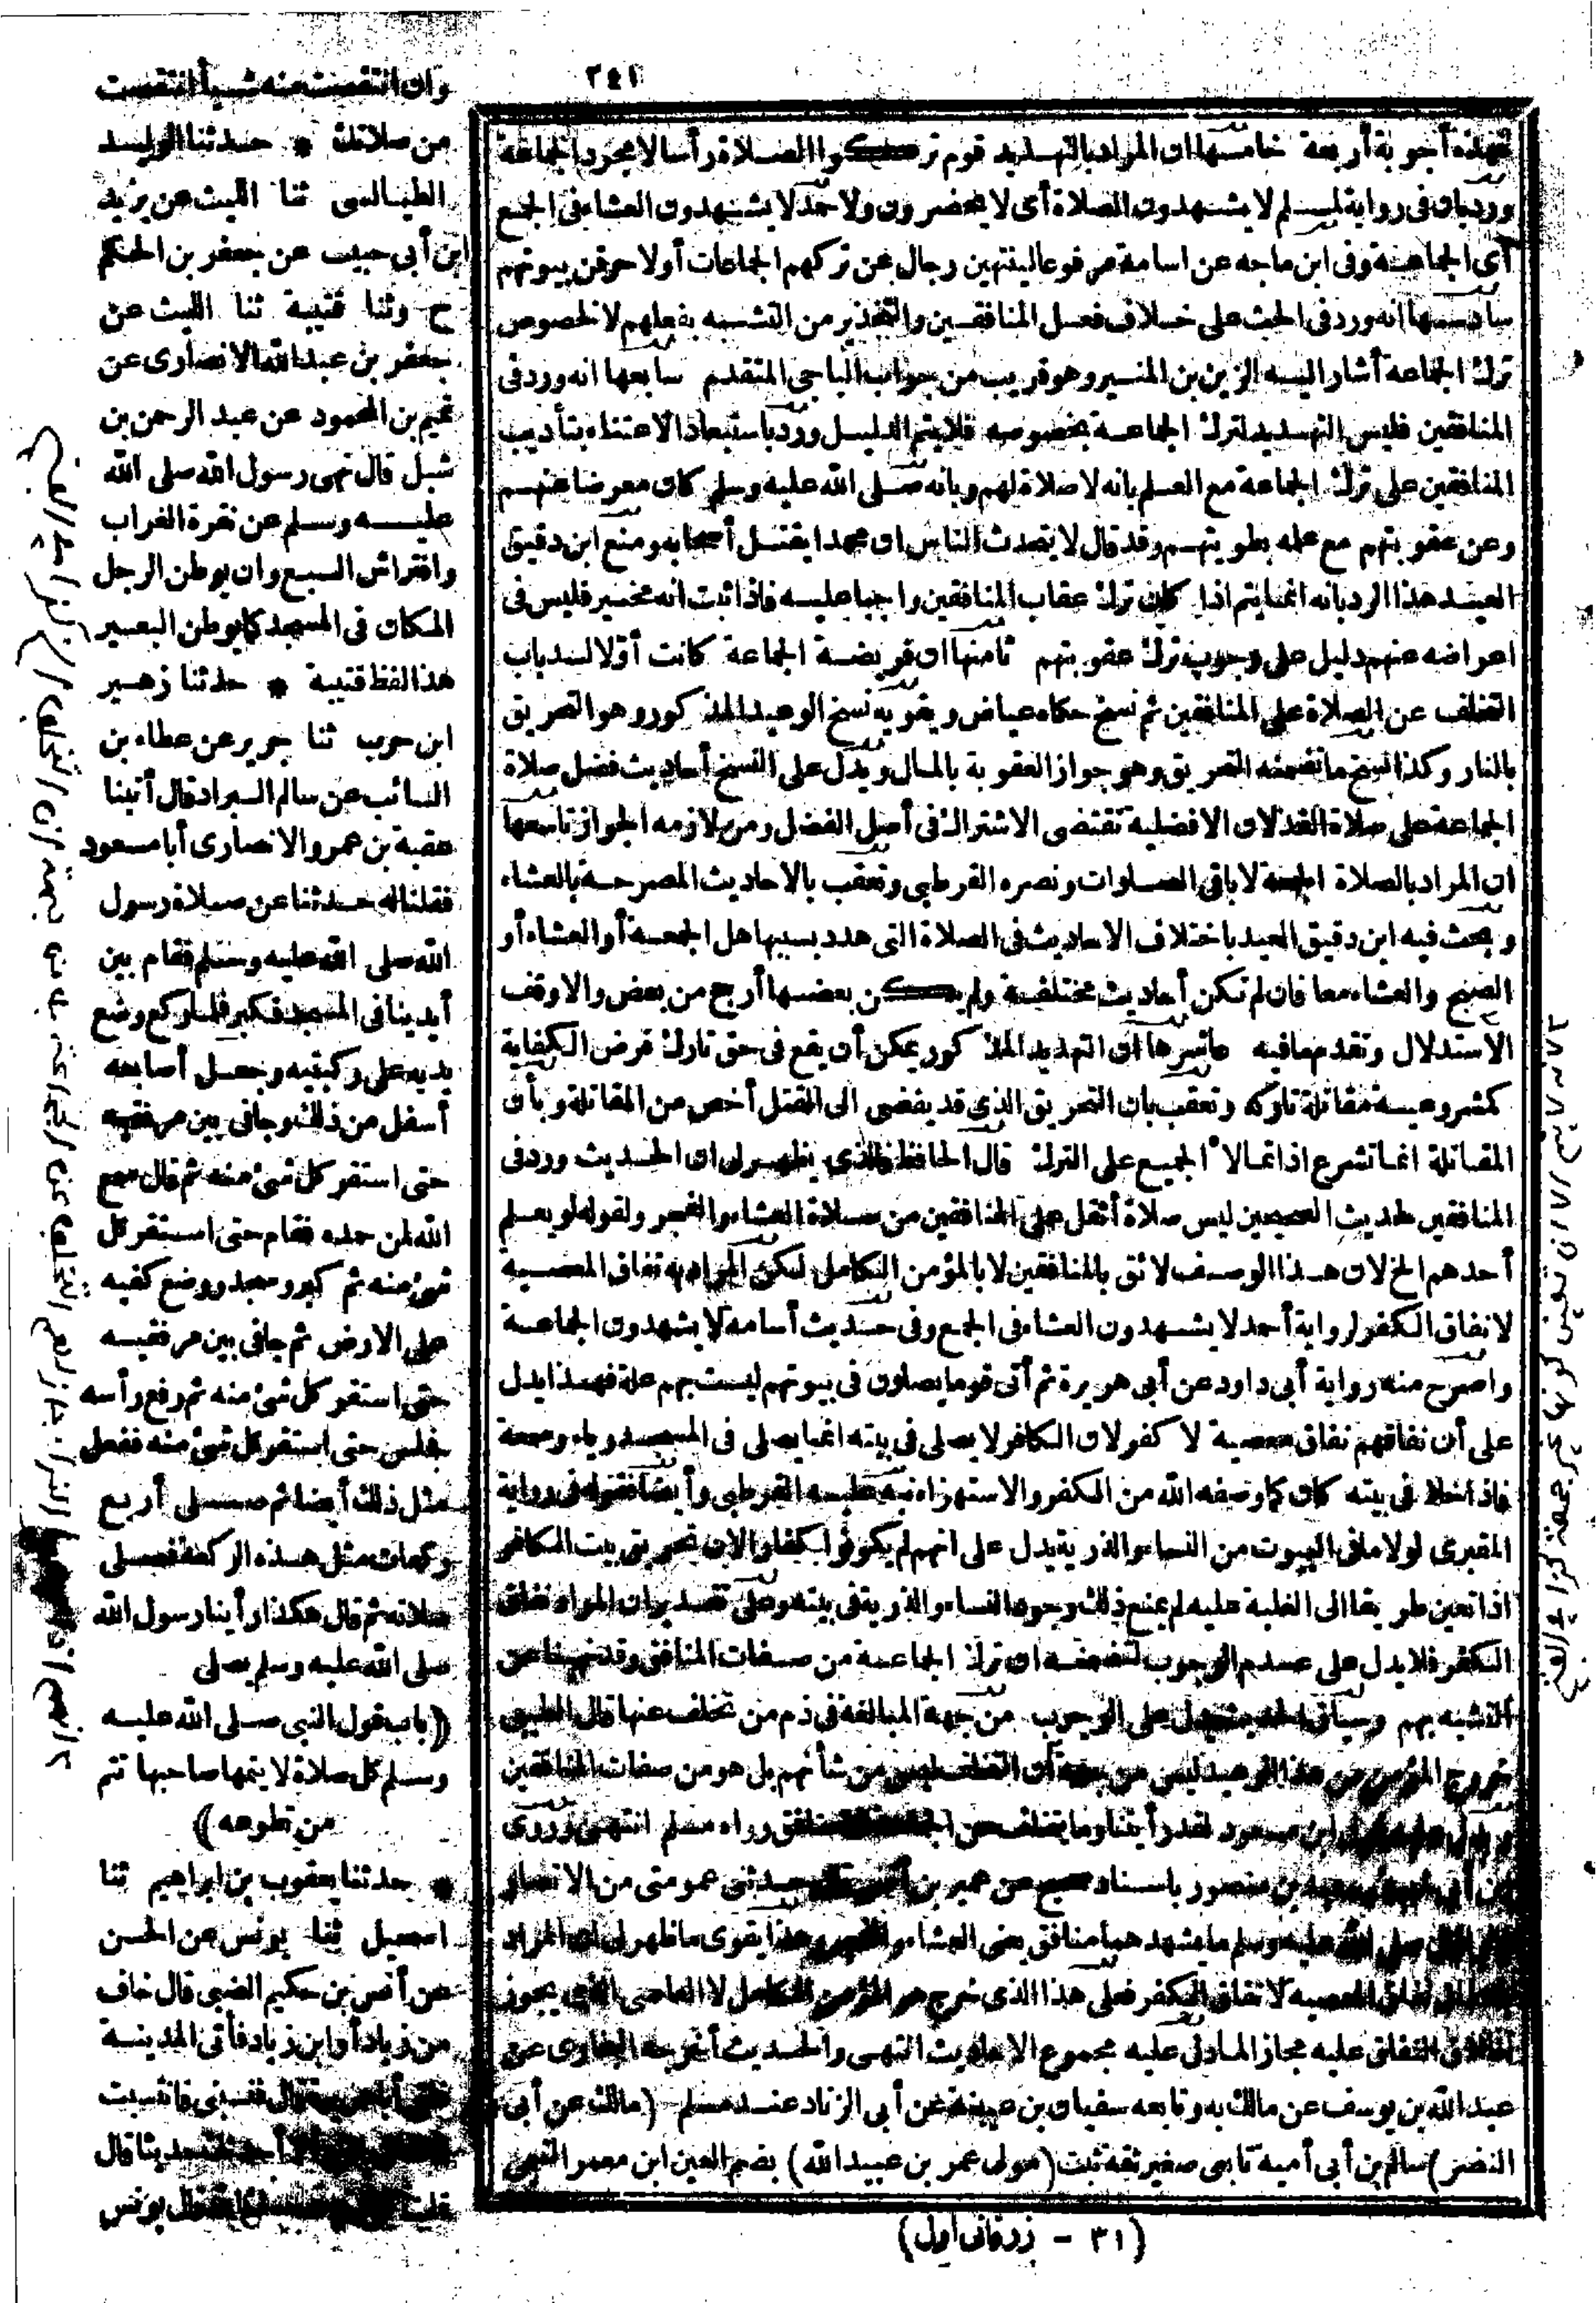 ٢٤١
فهذه أجوبة أربعة خامسها ان المراد بالتهديد قوم تركوا الصلاة رأسا لا مجرد الجماعة
ورد بان فى رواية لمسلم لا يشهدون الصلاة أى لا يحضرون ولاحمد لا يشهدون العشاء فى الجمع
أى الجماعة وفى ابن ماجه عن اسامة مرفوعا لينتهين رجال عن تركهم الجماعات أو لاحرقن بيوتهم
سادسها انه ورد فى الحث على خلاف فعل المنافقين والتحذير من التشبه بفعلهم لا لخصوص
ترك الجماعة أشار اليه الزين بن المنير وهو قريب من جواب الباجى المتقدم سابعها انه ورد فى
المنافقين فليس التهديد لترك الجماعة بخصوصه فلا يتم الدليل ورد باستبعاد الاعتناء بتأديب
المنافقين على ترك الجماعة مع العلم بانه لا صلاة لهم وبانه صلى الله عليه وسلم كان معرضا عنهم
وعن عقوبتهم مع علمه بطويتهم وقد قال لا يتحدث الناس ان محمدا يقتل أصحابه ومنع ابن دقيق
العيد هذا الرد بانه انما يتم اذا كان ترك عقاب المنافقين واجبا عليه فاذا ثبت انه مخير فليس فى
اعراضه عنهم دليل على وجوب ترك عقوبتهم ثامنها ان فريضة الجماعة كانت أولا لسد باب
التخلف عن الصلاة على المنافقين ثم نسخ حكاه عياض ويقويه نسخ الوعيد المذكور وهو التحريق
بالنار وكذا نسخ ما تضمنه التحريق وهو جواز العقوبة بالمال ويدل على النسخ أحاديث فضل صلاة
الجماعة على صلاة الفذ لان الافضلية تقتضى الاشتراك فى أصل الفضل ومن لازمه الجواز تاسعها
ان المراد بالصلاة الجمعة لا باقى الصلوات ونصره القرطبى وتعقب بالاحاديث المصرحة بالعشاء
وبحث فيه ابن دقيق العيد باختلاف الاحاديث فى الصلاة التى هدد بسببها هل الجمعة أو العشاء أو
الصبح والعشاء معا فان لم تكن أحاديث مختلفة ولم يكن بعضها أرجح من بعض والا وقف
الاستدلال وتقدم ما فيه عاشرها ان التهديد المذكور يمكن أن يقع فى حق تارك فرض الكفاية
كمشروعية مقاتلة تاركه وتعقب بان التحريق الذى قد يفضى الى القتل أخص من المقاتلة وبأن
المقاتلة انما تشرع اذا تمالأ الجميع على الترك قال الحافظ والذى يظهر لى ان الحديث ورد فى
المنافقين لحديث الصحيحين ليس صلاة أثقل على المنافقين من صلاة العشاء والفجر ولقوله لو يعلم
أحدهم الخ لان هذا الوصف لائق بالمنافقين لا بالمؤمن الكامل لكن المراد به نفاق المعصية
لا نفاق الكفر لرواية أحمد لا يشهدون العشاء فى الجمع وفى حديث أسامة لا يشهدون الجماعة
واصرح منه رواية أبى داود عن أبى هريرة ثم آتى قوما يصلون فى بيوتهم ليست بهم علة فهذا يدل
على أن نفاقهم نفاق معصية لا كفر لان الكافر لا يصلى فى بيته انما يصلى فى المسجد رياء وسمعة
فاذا خلا فى بيته كان كما وصفه الله من الكفر والاستهزاء نبه عليه القرطبى وأيضا فقوله فى رواية
المقبرى لولا ما فى البيوت من النساء والذرية يدل على انهم لم يكونوا كفارا لان تحريق بيت الكافر
اذا تعين طريقا الى الغلبة عليه لم يمنع ذلك وجود النساء والذرية فى بيته وعلى تقدير ان المراد نفاق
الكفر فلا يدل على عدم الوجوب لتضمنه ان ترك الجماعة من صفات المنافق وقد نهينا عن
التشبه بهم وسياق الحديث يدل على الوجوب من جهة المبالغة فى ذم من تخلف عنها قال الطيبى
خروج المؤمن من هذا الوعيد ليس من جهة أن التخلف ليس من شأنهم بل هو من صفات المنافقين
ويدل عليه قول ابن مسعود لقد رأيتنا وما يتخلف عن الجماعة الا منافق رواه مسلم انتهى وروى
ابن أبى شيبة وسعيد بن منصور باسناد صحيح عن عمير بن أنس حدثنى عمومتى من الانصار
صلى الله عليه وسلم ما يشهدهما منافق يعنى العشاء والفجر وهذا يقوى ما ظهر لى ان المراد
نفاق المعصية لا نفاق الكفر فعلى هذا الذى خرج هو المؤمن الكامل لا العاصى الذى يجوز
اطلاق النفاق عليه مجازا لما دل عليه مجموع الاحاديث انتهى والحديث أخرجه البخارى عن
عبد الله بن يوسف عن مالك به وتابعه سفيان بن عيينة عن أبى الزناد عند مسلم (مالك عن أبى
النضر) سالم بن أبى أمية تابعى صغير ثقة ثبت (مولى عمر بن عبيد الله) بضم العين ابن معمر التيمى
(٣١ – زرقانى اول)
وان انتقصت منه شيأ انتقصت
من صلاتك * حدثنا أبو الوليد
الطيالسى ثنا الليث عن يزيد
ابن أبى حبيب عن جعفر بن الحكم
ح وثنا قتيبة ثنا الليث عن
جعفر بن عبد الله الانصارى عن
تميم بن المحمود عن عبد الرحمن بن
شبل قال نهى رسول الله صلى الله
عليه وسلم عن نقرة الغراب
وافتراش السبع وان يوطن الرجل
المكان فى المسجد كما يوطن البعير
هذا لفظ قتيبة * حدثنا زهير
ابن حرب ثنا جرير عن عطاء بن
السائب عن سالم البراد قال أتينا
عقبة بن عمرو الانصارى أبا مسعود
فقلنا له حدثنا عن صلاة رسول
الله صلى الله عليه وسلم فقام بين
أيدينا فى المسجد فكبر فلما ركع وضع
يديه على ركبتيه وجعل أصابعه
أسفل من ذلك وجافى بين مرفقيه
حتى استقر كل شئ منه ثم قال سمع
الله لمن حمده فقام حتى استقر كل
شئ منه ثم كبر وسجد ووضع كفيه
على الارض ثم جافى بين مرفقيه
حتى استقر كل شئ منه ثم رفع رأسه
فجلس حتى استقر كل شئ منه ففعل
مثل ذلك أيضا ثم صلى أربع
ركعات مثل هذه الركعة فصلى
صلاته ثم قال هكذا رأينا رسول الله
صلى الله عليه وسلم يصلى
(باب قول النبى صلى الله عليه
وسلم كل صلاة لا يتمها صاحبها تتم
من تطوعه)
* حدثنا يعقوب بن ابراهيم ثنا
اسمعيل ثنا يونس عن الحسن
عن أنس بن حكيم الضبى قال خاف
من زياد أو ابن زياد فأتى المدينة
فلقى أبا هريرة قال فنسبنى فانتسبت
حديثا قال
قلت قال يونس